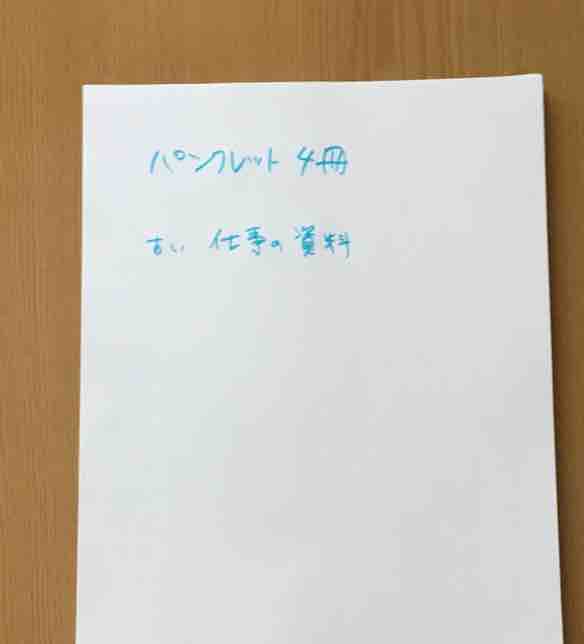 パンフレット 4冊
古い 仕事の 資料